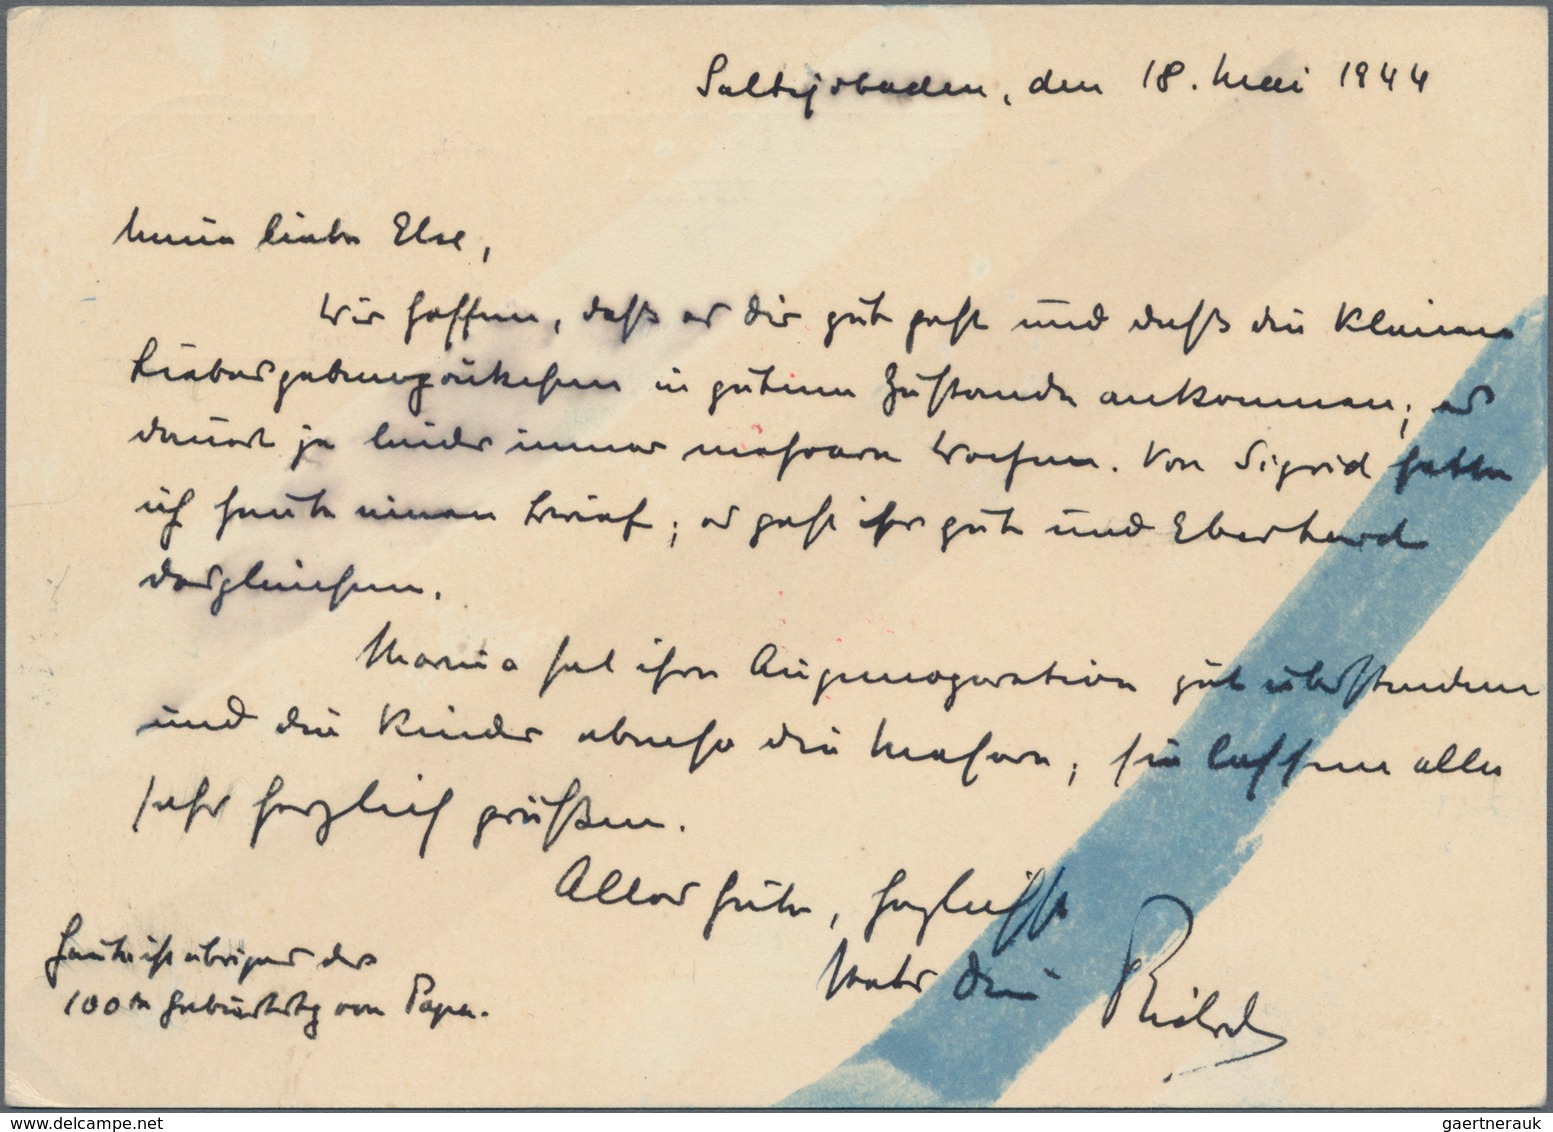 Saltsjobaden, den 18. Mai 1944
Meine liebe Else,
Wir hoffen, daß es Dir gut geht und daß die kleinen
Liebesgabenpäckchen in gutem Zustande ankommen; es
dauert ja leider immer mehrere Wochen. Von Sigrid hatte
ich heute einen Brief; es geht ihr gut und Eberhard
desgleichen.
hat ihre Augenoperation gut überstanden
und die Kinder ebenso die Masern; sie lassen alle
sehr herzlich grüßen.
Alles Gute, herzlichst
stets Dein
Heute ist übrigens der
100te Geburtstg von Papa.
gaertnerauk